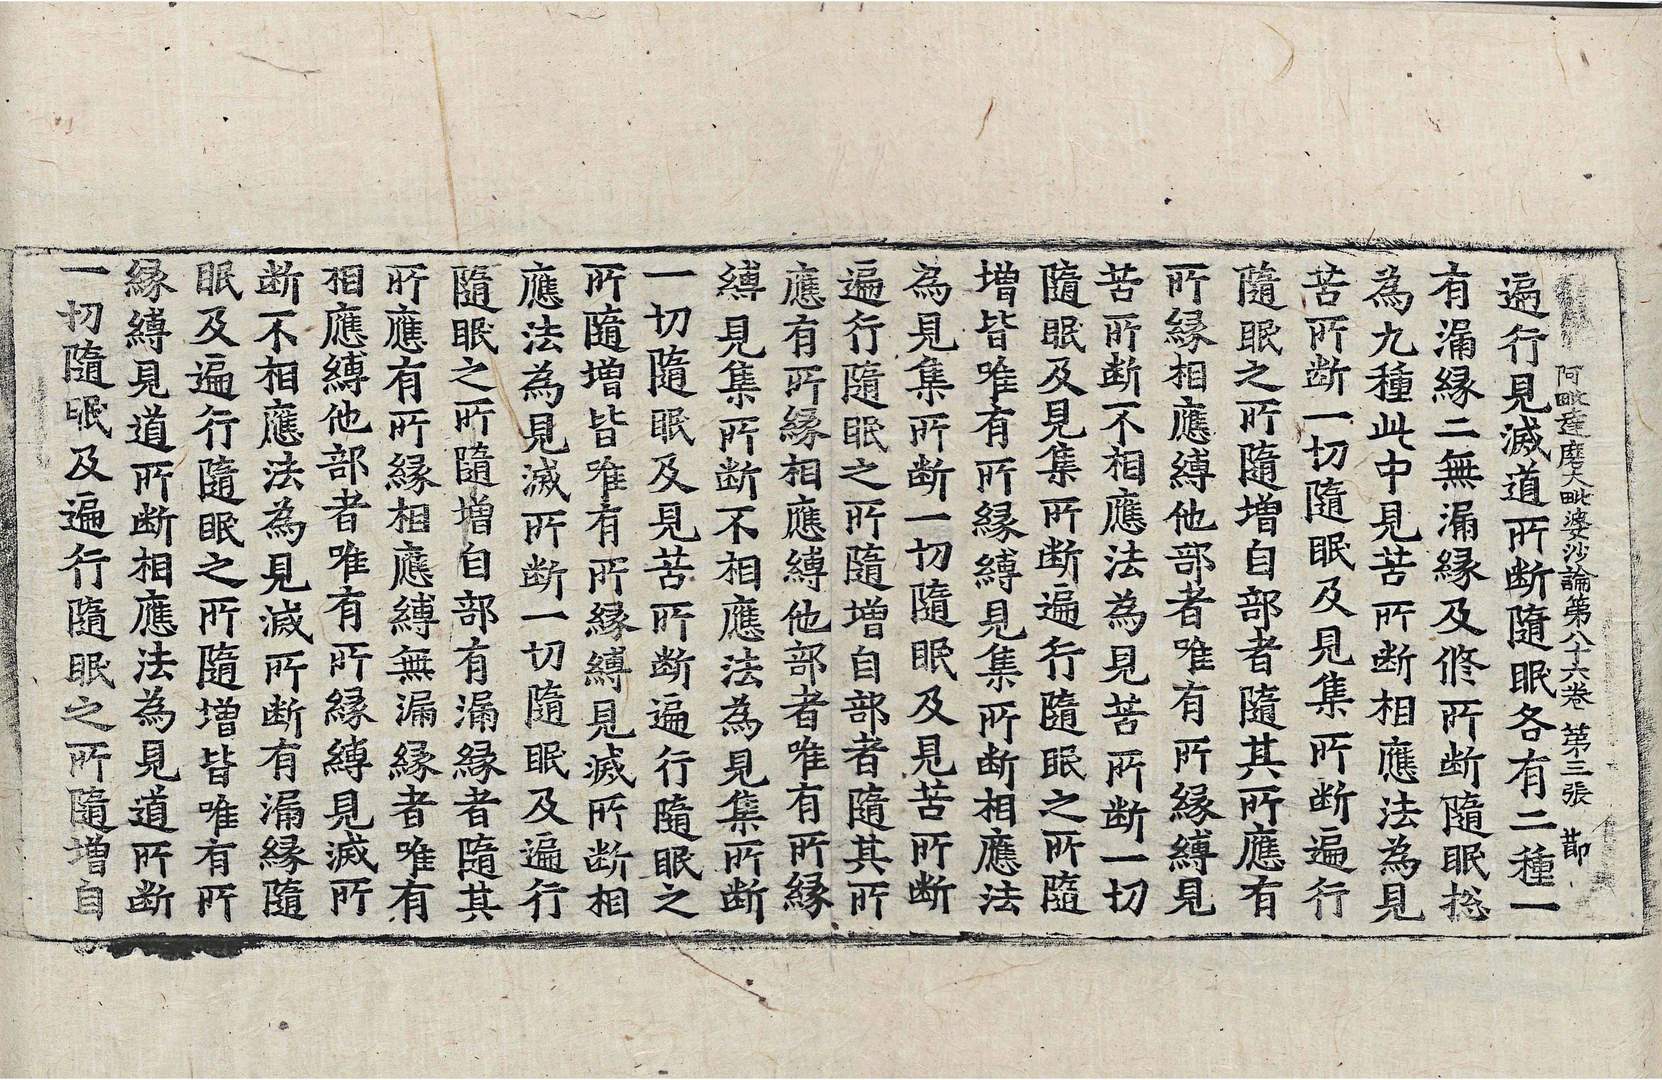 阿毗達磨大毗婆沙論第八十六卷 第三張 節
遍行見滅道所断隨眠各有二種一
有漏縁二無漏縁及修所断隨眠捴
為九種此中見苦所断相應法為見
苦所断一切隨眠及見集所断遍行
隨眠之所隨增自部者隨其所應有
所縁相應縛他部者唯有所縁縛見
苦所断不相應法為見苦所断一切
隨眠及見集所断遍行隨眠之所隨
增皆唯有所縁縛見集所断相應法
為見集所断一切隨眠及見苦所断
遍行隨眠之所隨增自部者隨其所
應有所縁相應縛他部者唯有所縁
縛見集所断不相應法為見集所断
一切隨眠及見苦所断遍行隨眠之
所隨增皆唯有所縁縛見滅所断相
應法為見滅所断一切隨眠及遍行
隨眠之所隨增自部有漏縁者隨其
所應有所縁相應縛無漏縁者唯有
相應縛他部者唯有所縁縛見滅所
断不相應法為見滅所断有漏縁隨
眠及遍行隨眠之所隨增皆唯有所
縁縛見道所断相應法為見道所断
一切隨眠及遍行隨眠之所隨增自